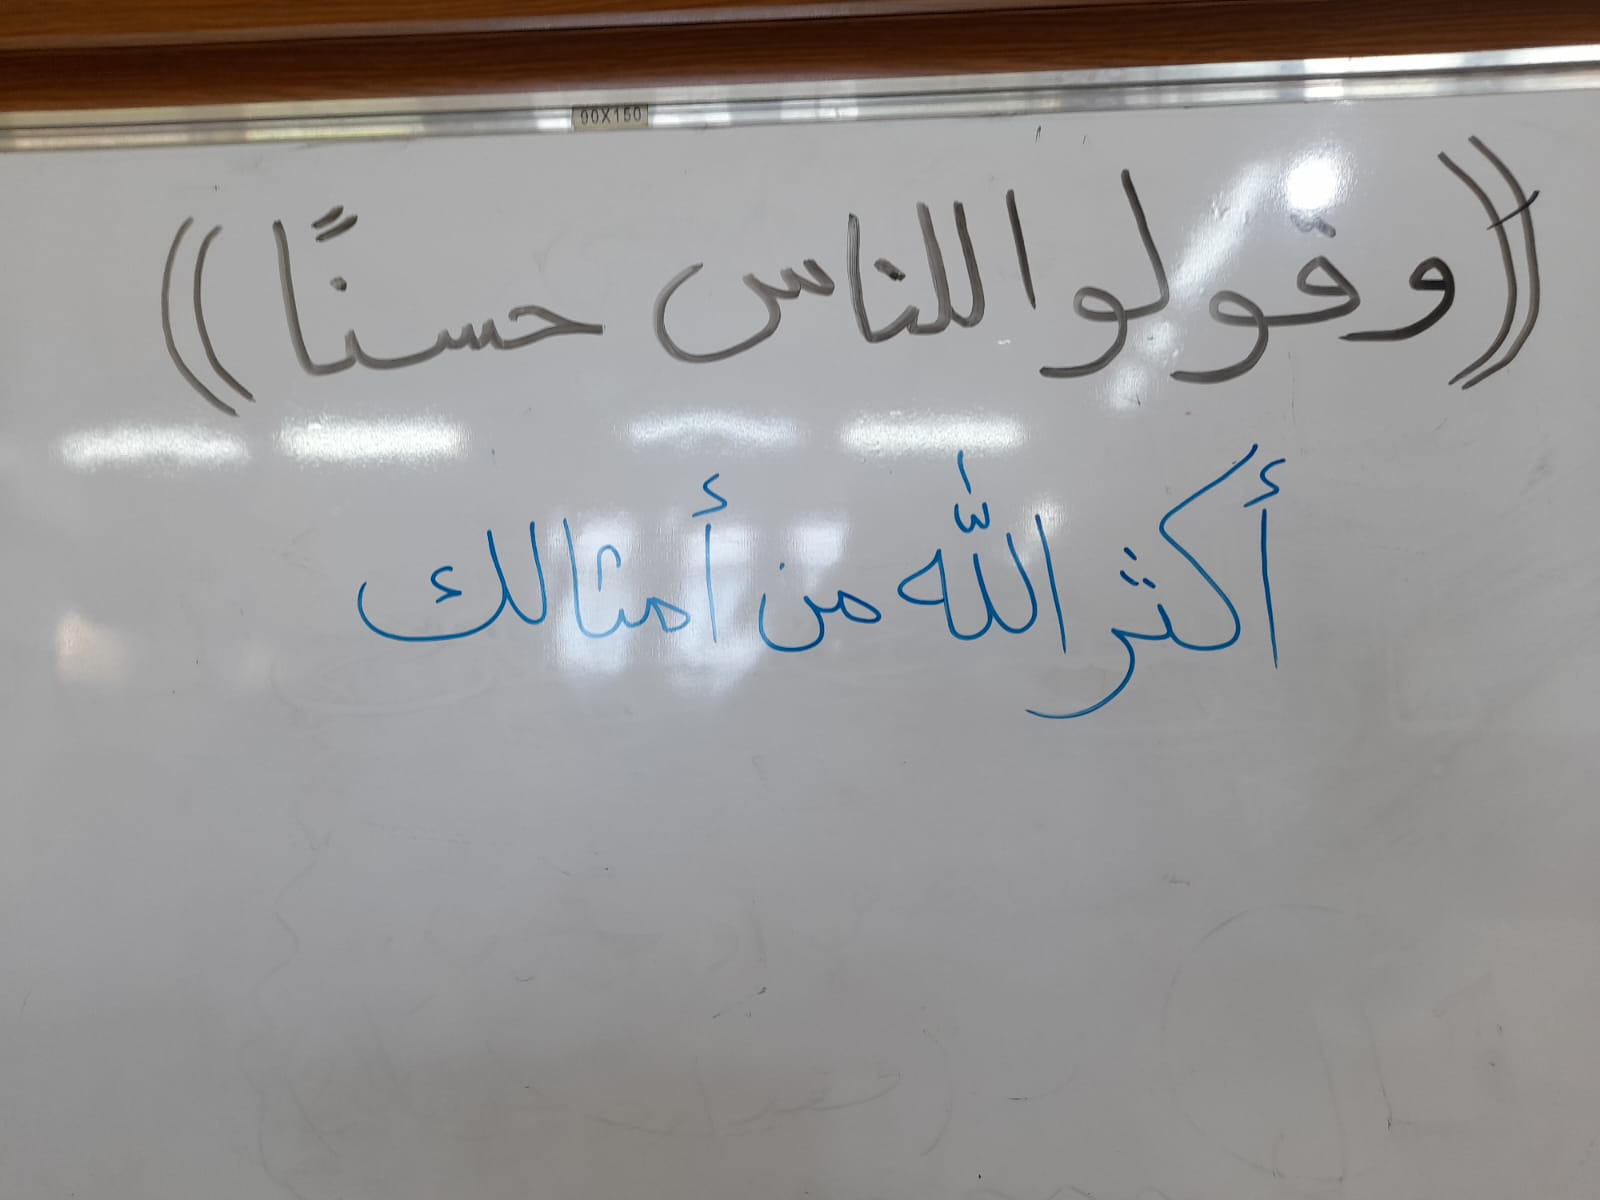 90X150
((وقولوا للناس حسنًا))
أكثر اللّٰه من أمثالك